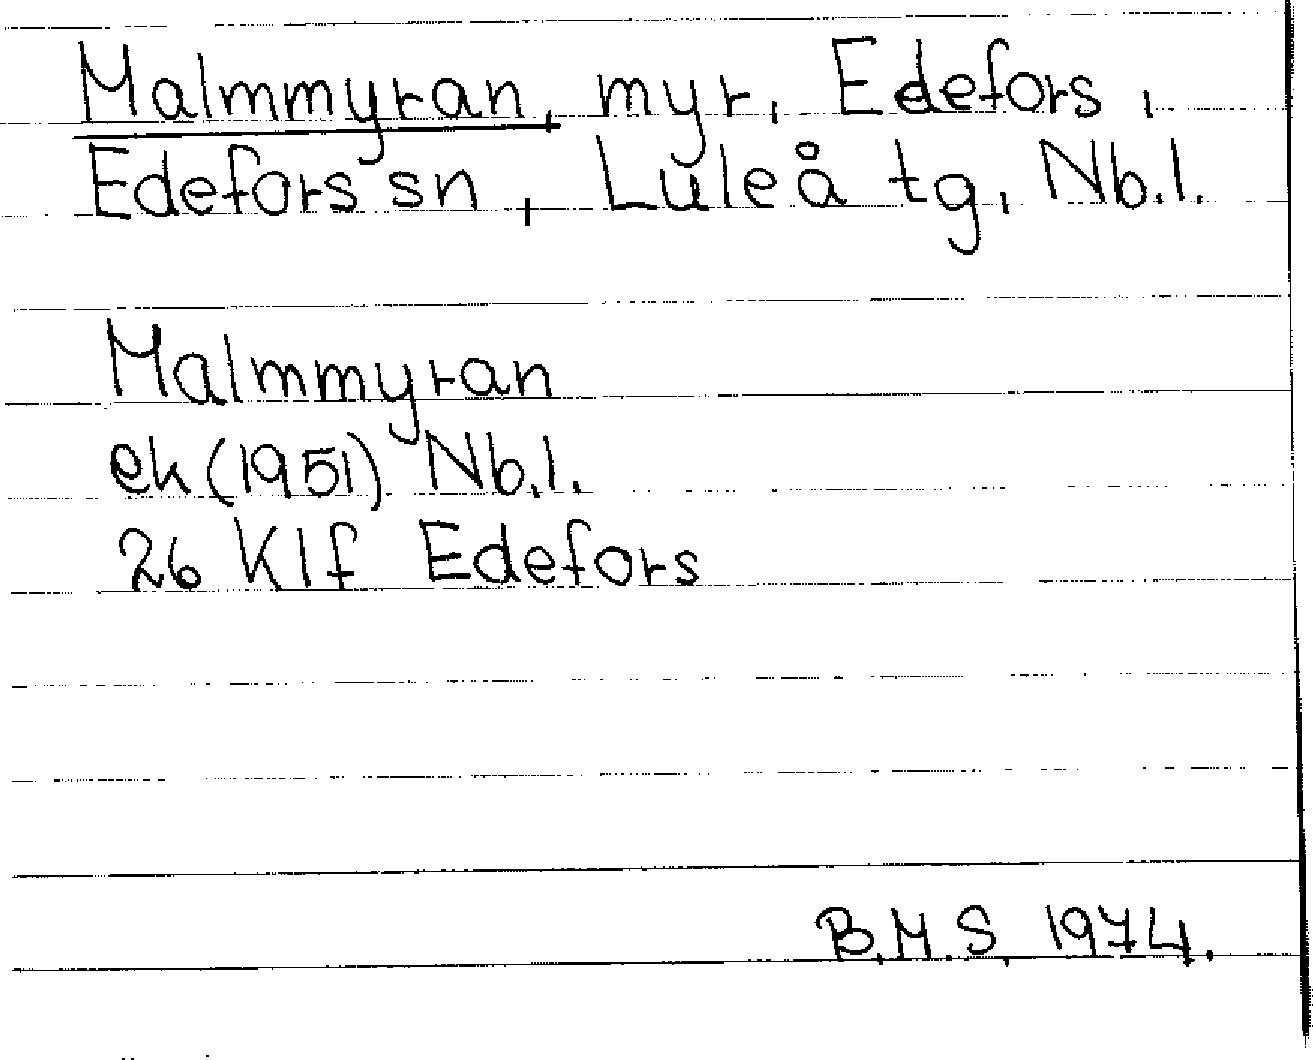 Malmmyran, myr, Edefors,
Edefors sn, Luleå tg, Nb.l.
Malmmyran
ek (1951) Nb.l.
26 Klf Edefors
B.M.S, 1974.